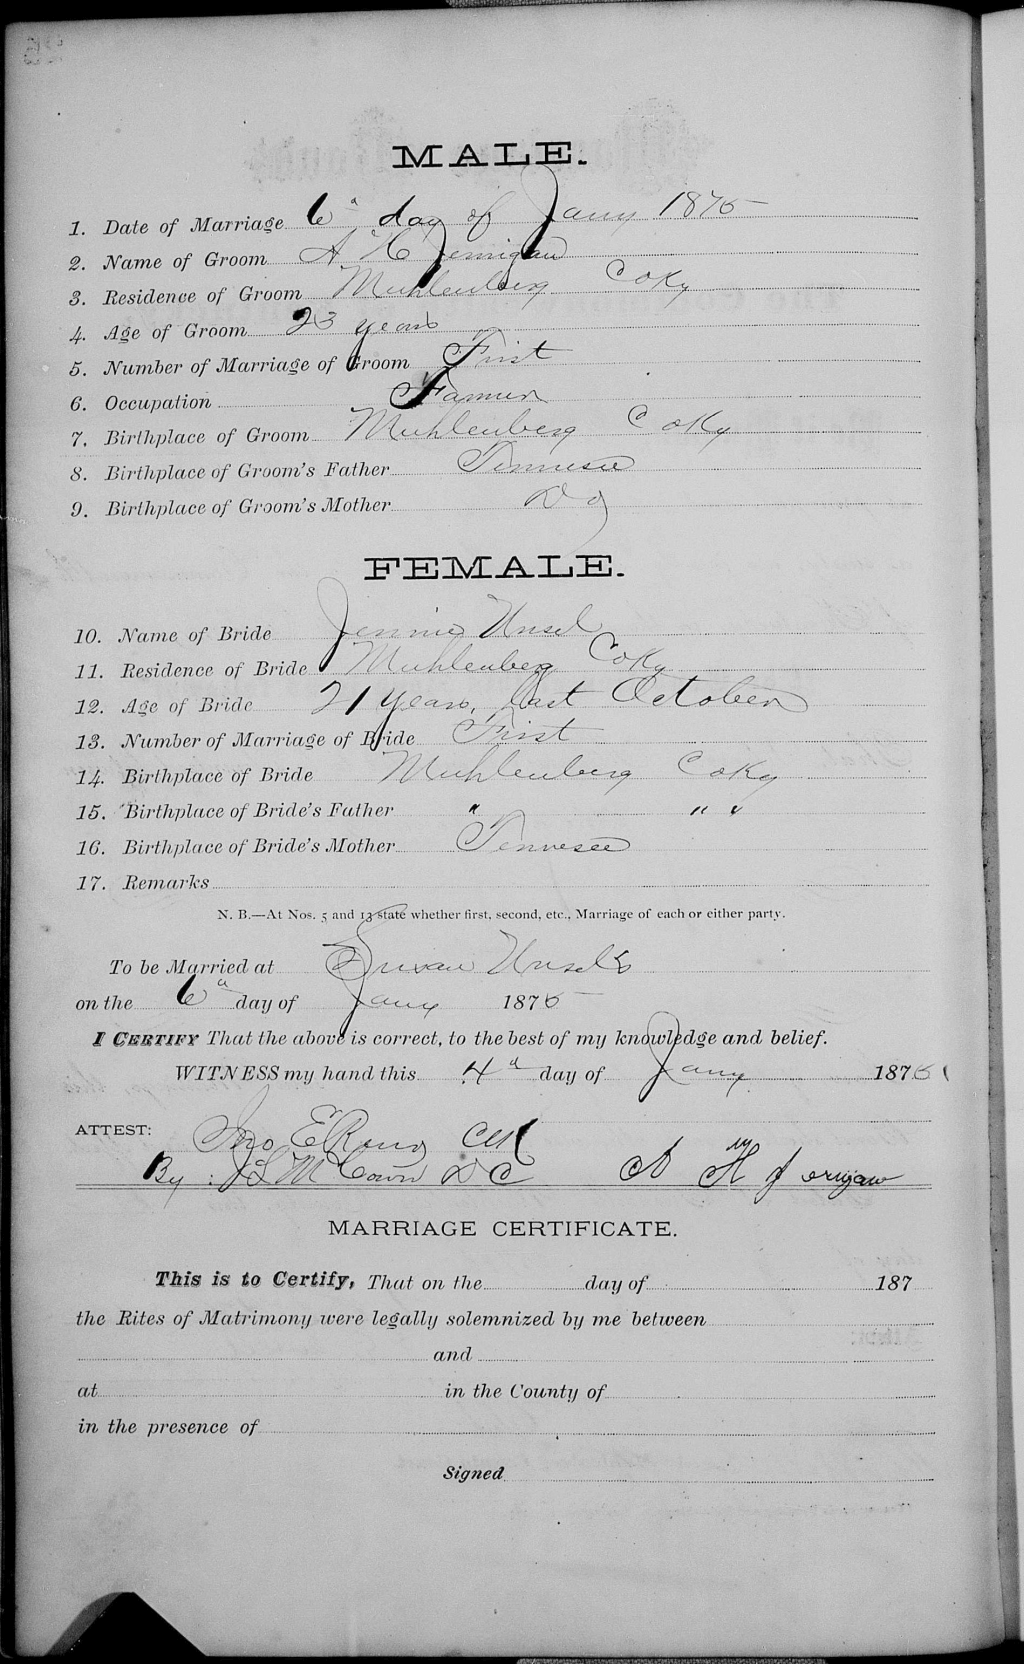 MALE.
1. Date of Marriage 6th day of Jany 1875
2. Name of Groom A H Jernigan
3. Residence of Groom Muhlenberg Co Ky
4. Age of Groom 23 years
5. Number of Marriage of Groom First
6. Occupation Farmer
7. Birthplace of Groom Muhlenberg Co Ky
8. Birthplace of Groom's Father Tennessee
9. Birthplace of Groom's Mother Do
FEMALE.
10. Name of Bride Jennie Unsel
11. Residence of Bride Muhlenberg Co Ky
12. Age of Bride 21 years, last October
13. Number of Marriage of Bride First
14. Birthplace of Bride Muhlenberg Co Ky
15. Birthplace of Bride's Father " " "
16. Birthplace of Bride's Mother Tennessee
17. Remarks
N. B.—At Nos. 5 and 13 state whether first, second, etc., Marriage of each or either party.
To be Married at Susan Unsels
on the 6th day of Jany 1875
I CERTIFY That the above is correct, to the best of my knowledge and belief.
WITNESS my hand this 4th day of Jany 1875
ATTEST: Jno E Reno Clk
By J S McCown DC A H Jernigan
MARRIAGE CERTIFICATE.
This is to Certify, That on the day of 187
the Rites of Matrimony were legally solemnized by me between
and
at in the County of
in the presence of
Signed